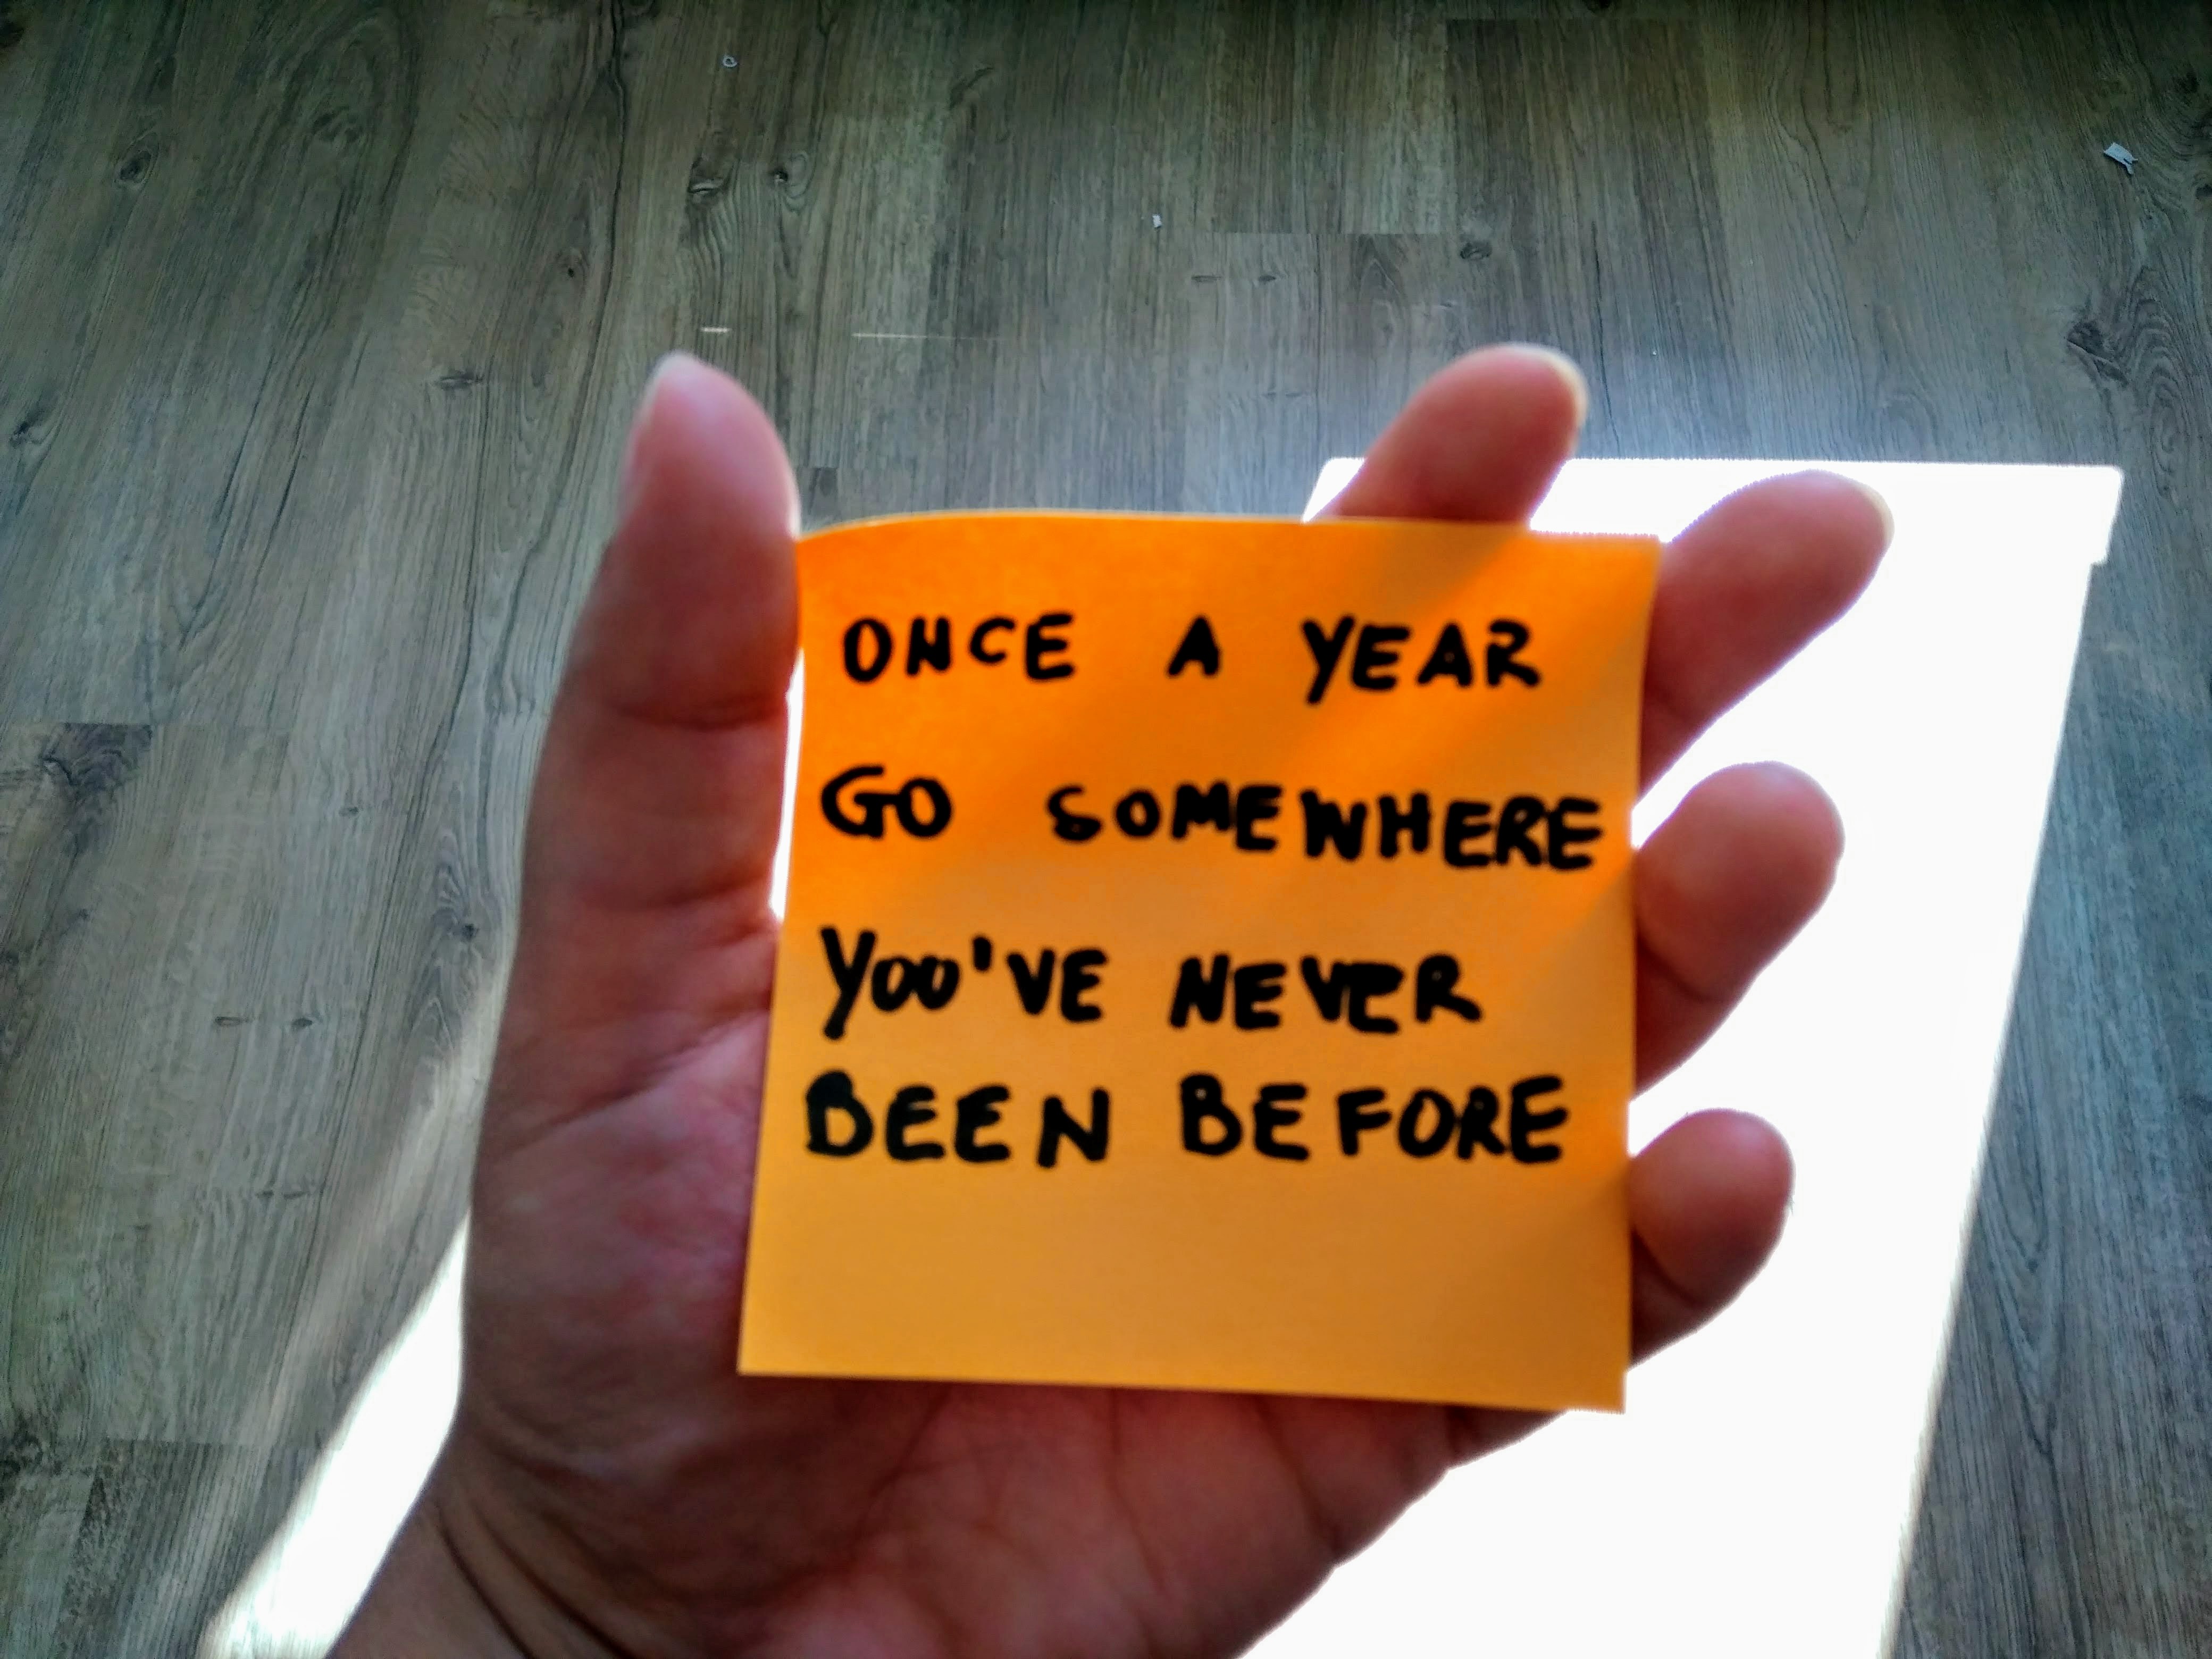 ONCE A YEAR
GO SOMEWHERE
YOU'VE NEVER
BEEN BEFORE